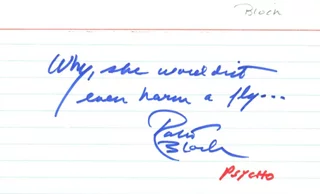 Bloch
Why, she wouldn't
even harm a fly...
Robert
Bloch
PSYCHO